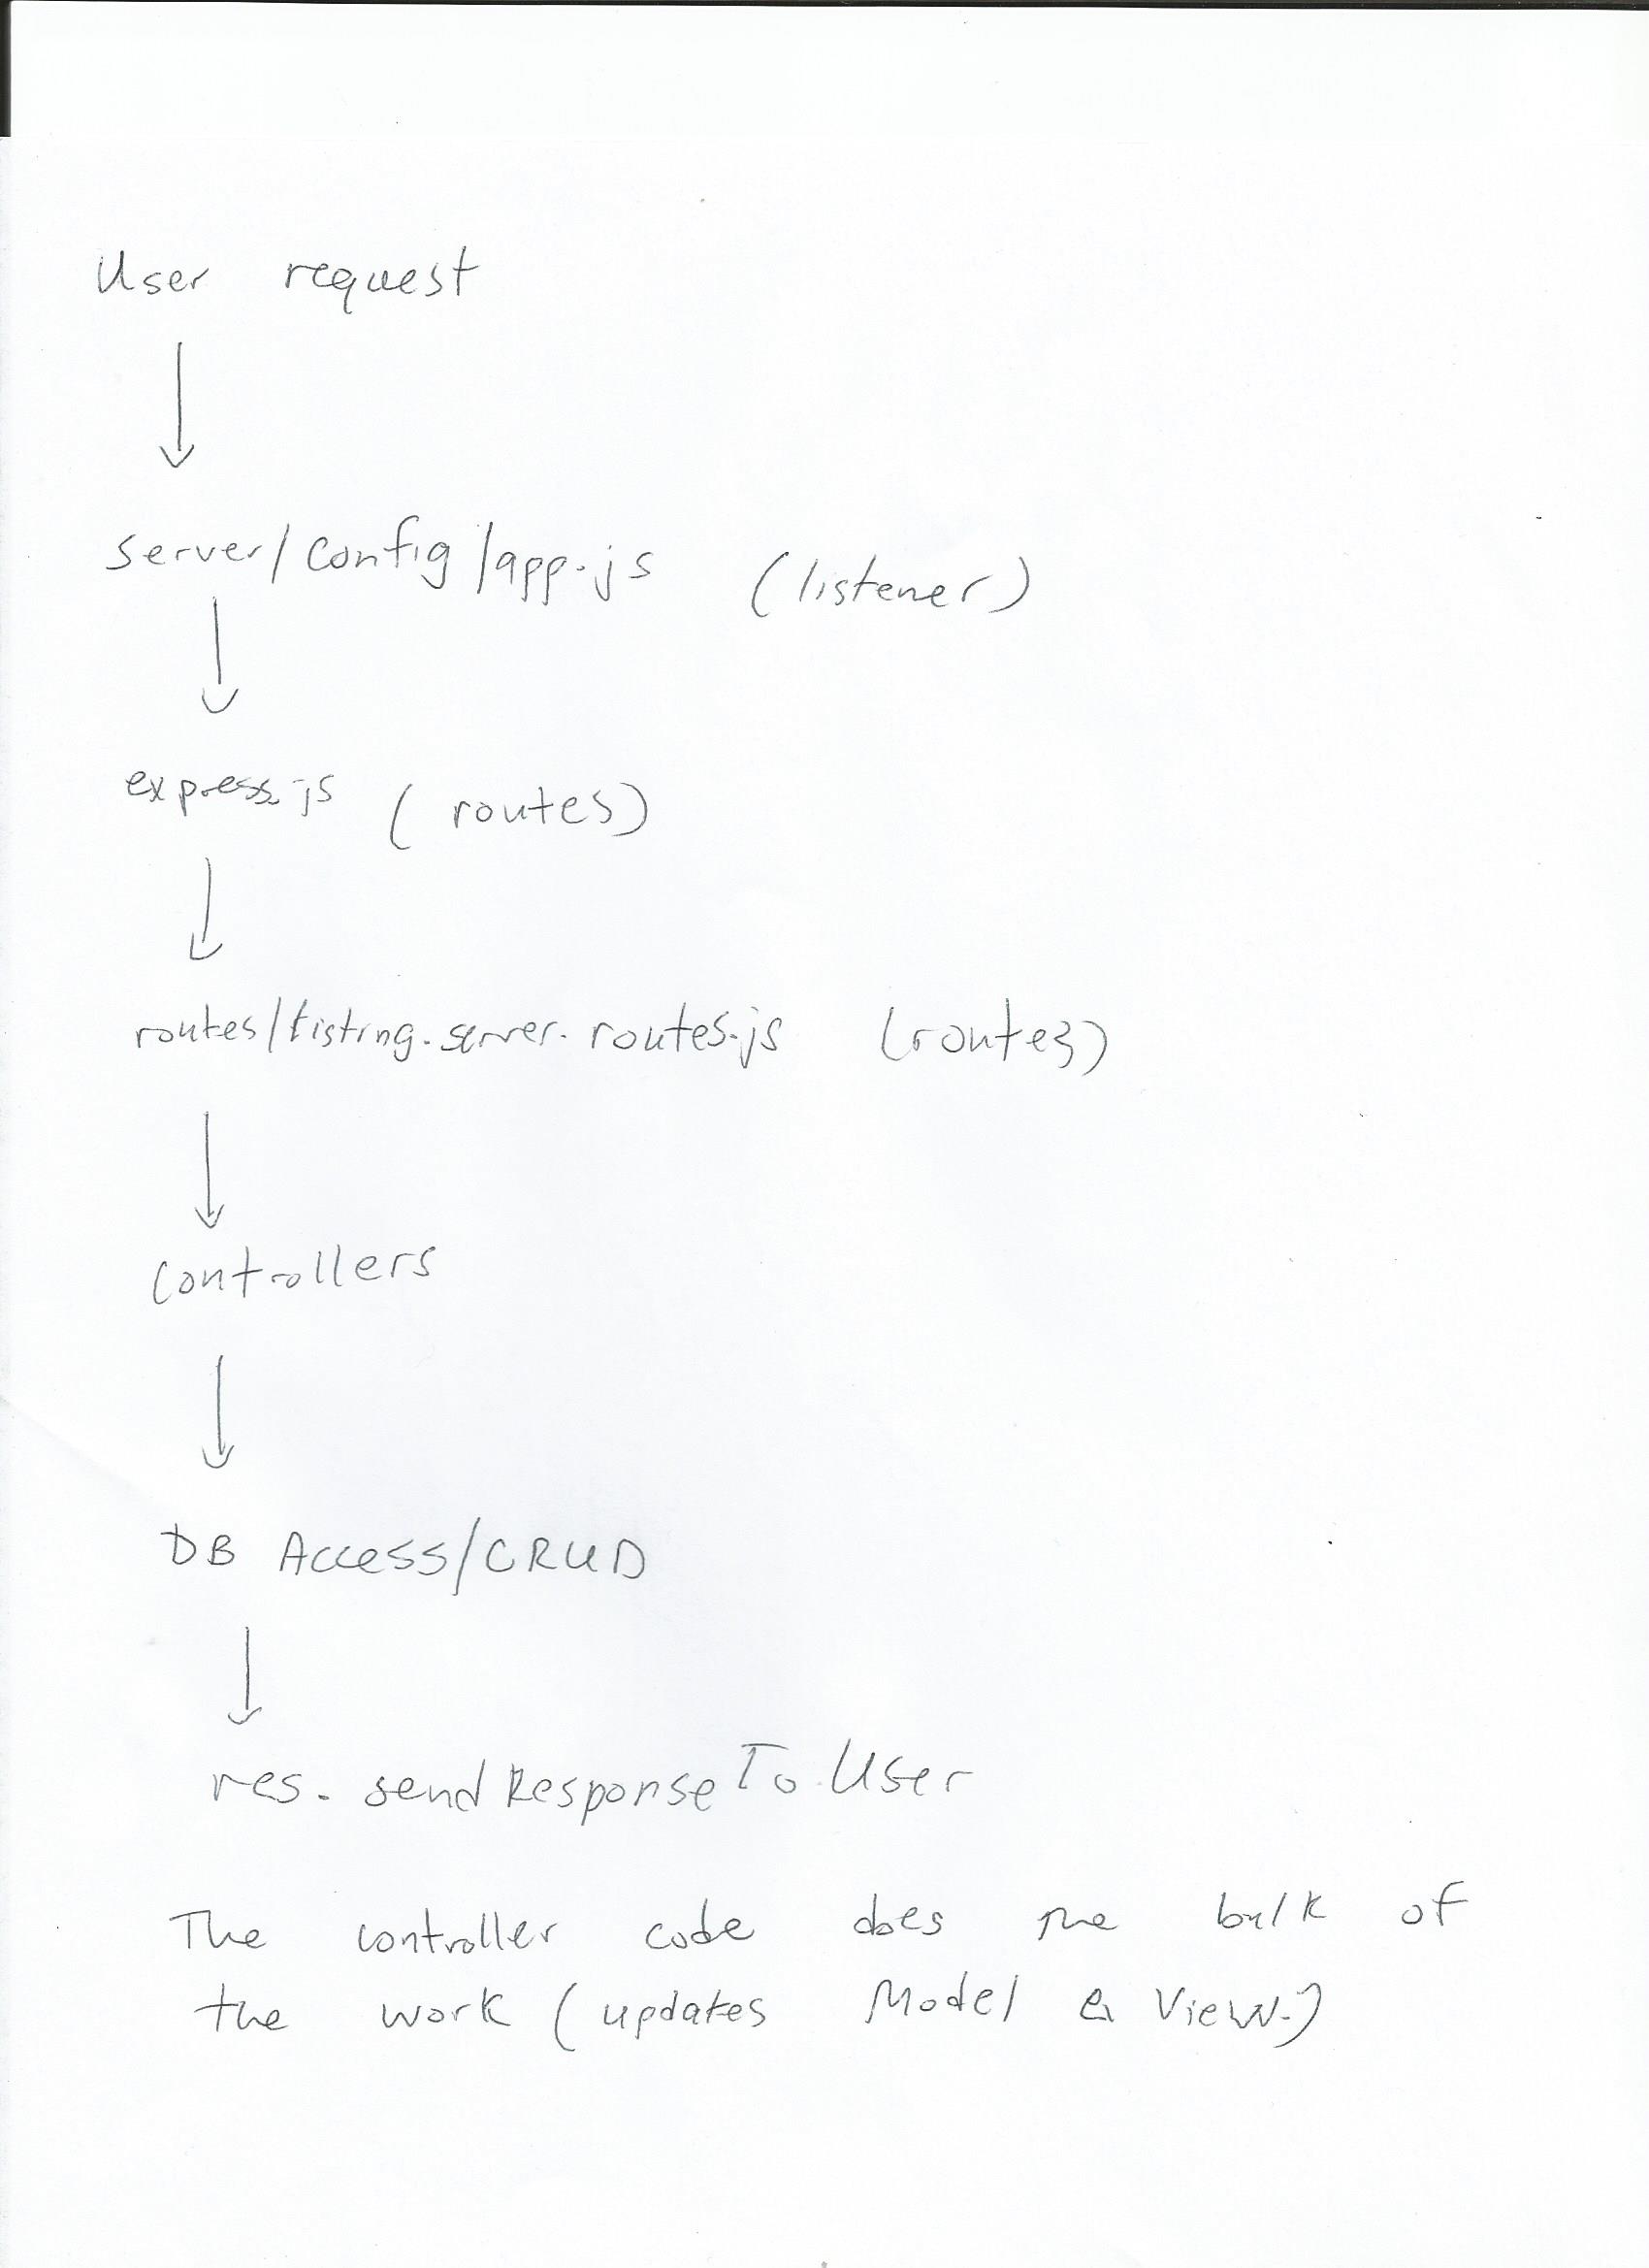 User request
server/config/app.js (listener)
express.js (routes)
routes/listing.server.routes.js (routes)
controllers
DB Access/CRUD
res.sendResponseToUser
The controller code does the bulk of
the work (updates Model & View.)